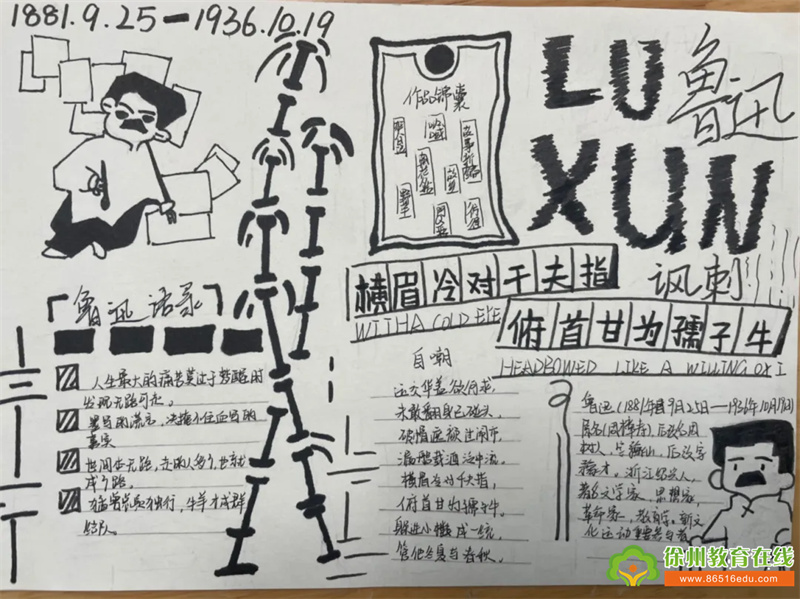 1881.9.25—1936.10.19
作品锦囊
LU
鲁迅
XUN
横眉冷对千夫指
讽刺
WITH A COLD EYE
俯首甘为孺子牛
HEADBOWED LIKE A WILLING OX I
鲁迅语录
人生最大的痛苦莫过于梦醒时
发现无路可走。
墨写的谎言,决掩不住血写的
事实
世间本无路,走的人多了,也就
成了路。
猛兽总是独行,牛羊才成群
结队。
自嘲
运交华盖欲何求,
未敢翻身已碰头。
破帽遮颜过闹市,
漏船载酒泛中流。
横眉冷对千夫指,
俯首甘为孺子牛。
躲进小楼成一统,
管他冬夏与春秋。
鲁迅(1881年9月25日—1936年10月19日)
原名周樟寿,后改名周
树人,字豫山,后改字
豫才。浙江绍兴人,
著名文学家、思想家,
革命家,教育家。新文
化运动重要参与者
徐州教育在线
www.86516edu.com